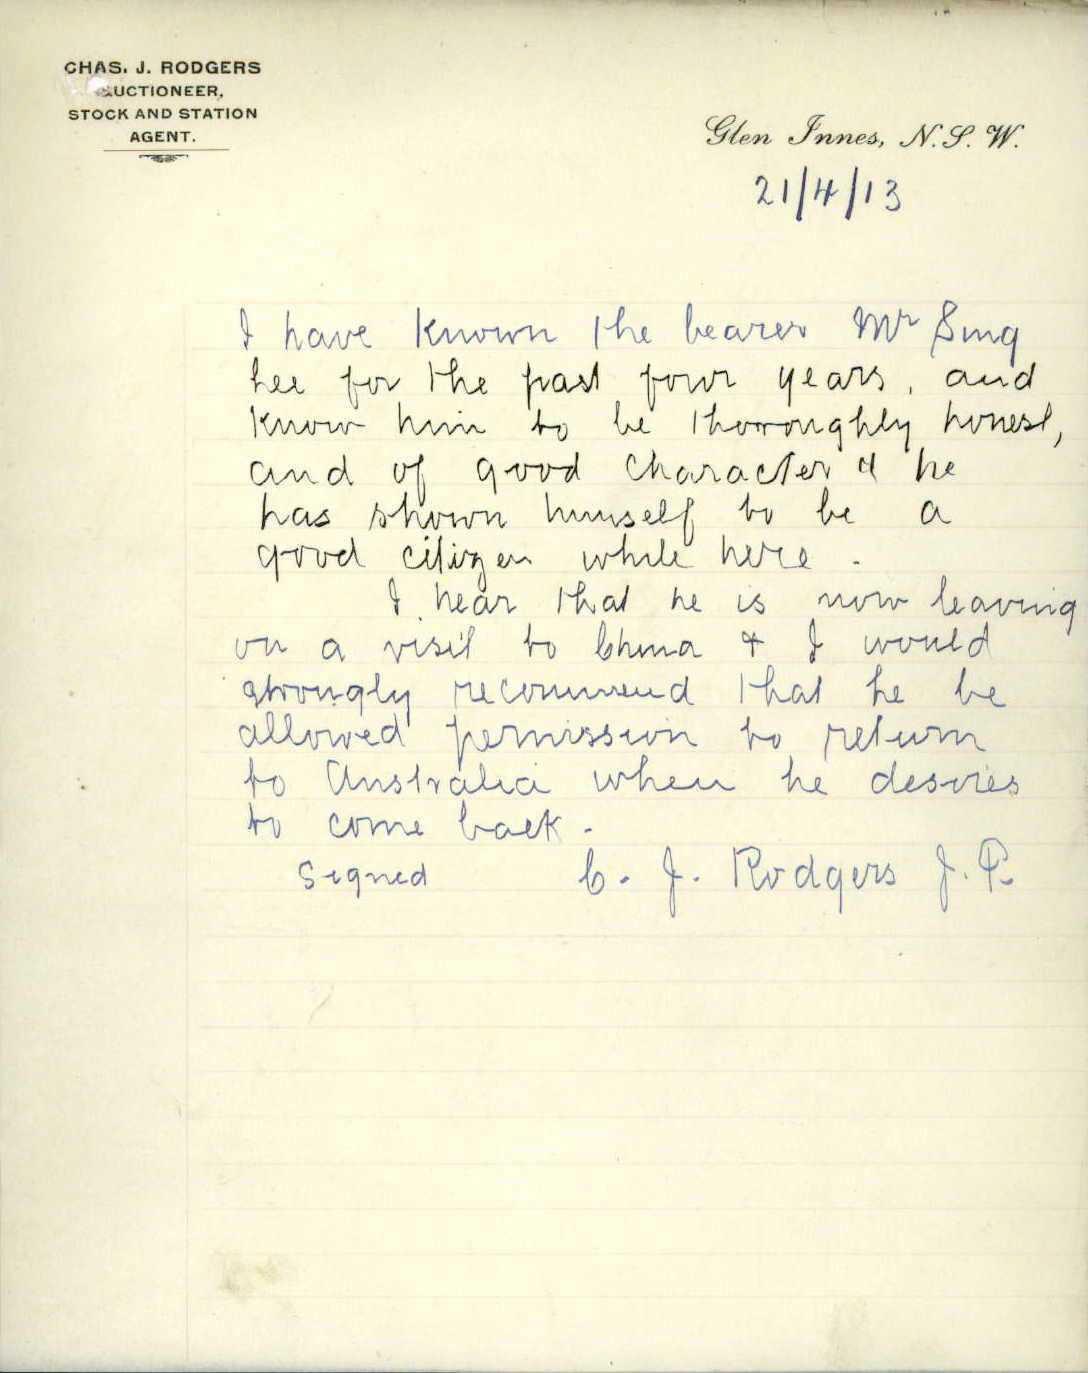 CHAS. J. RODGERS
AUCTIONEER,
STOCK AND STATION
AGENT.
Glen Innes, N.S.W.
21/4/13
I have known the bearer Mr Sing
hee for the past four years, and
know him to be thorroughly honest,
and of good character & he
has shown himself to be a
good citizen while here.
I hear that he is now leaving
on a visit to China & I would
strongly recommend that he be
allowed permission to return
to Australia when he desires
to come back.
Signed C. J. Rodgers J.P.